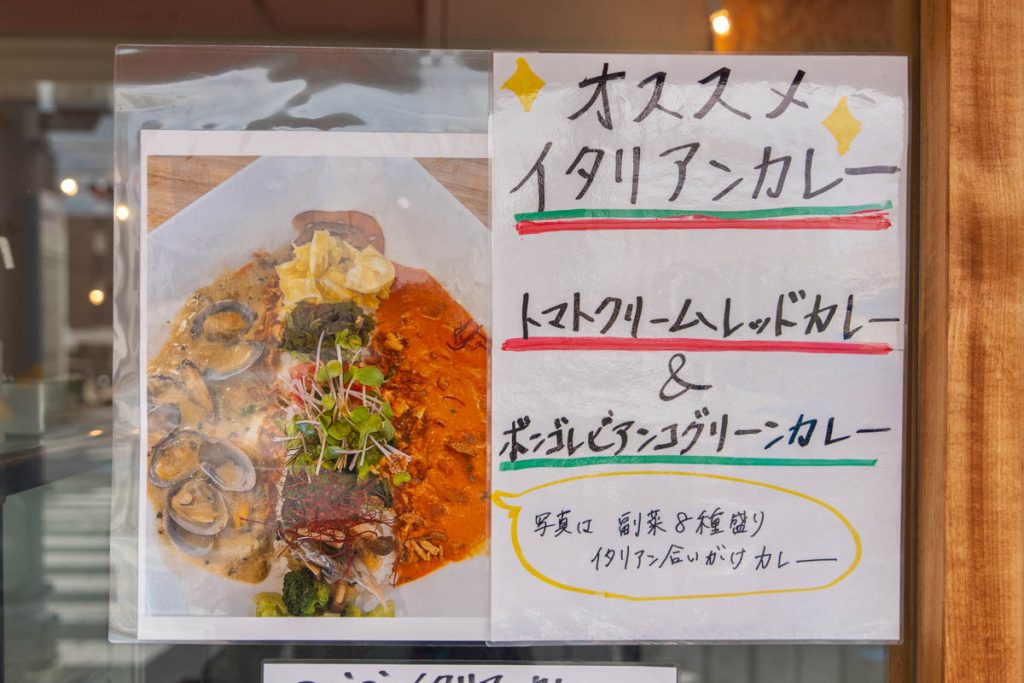 オススメ
イタリアンカレー
トマトクリームレッドカレー
&
ボンゴレビアンコグリーンカレー
写真は 副菜8種盛り
イタリアン合いがけカレー